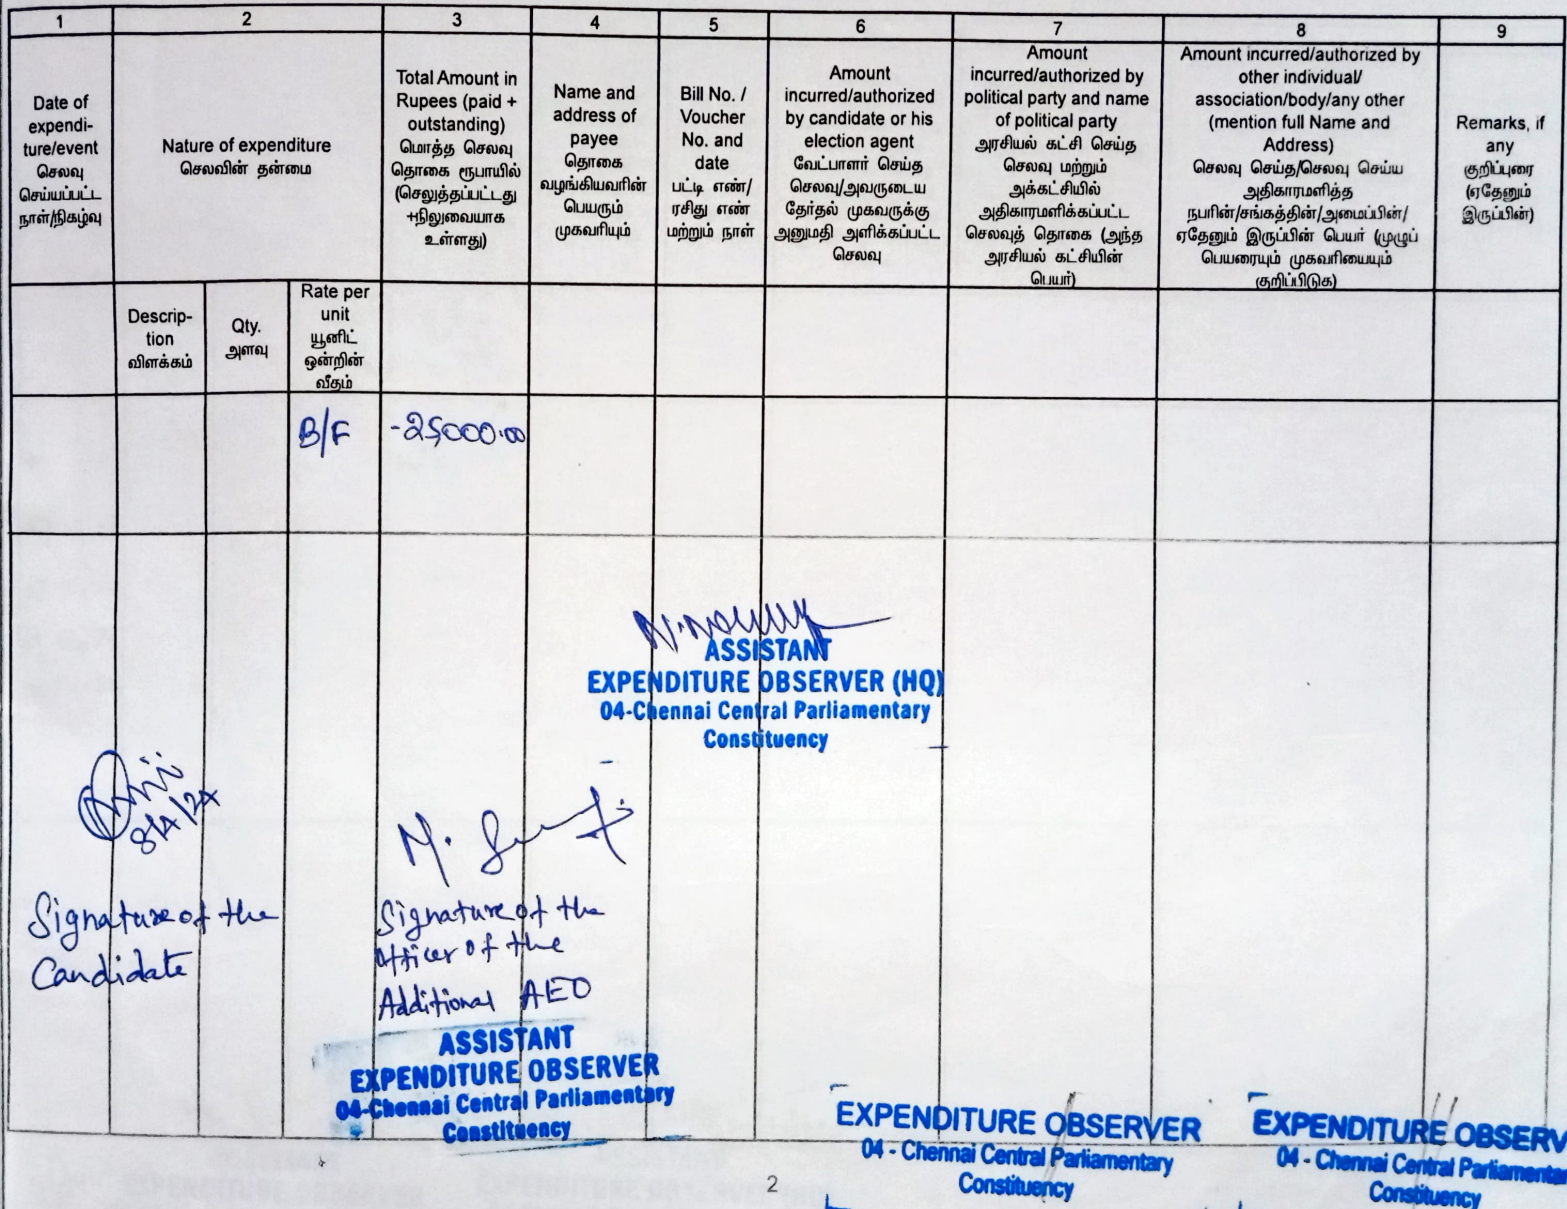 1
2
3
4
5
6
7
8
9
Date of
expendi-
ture/event
செலவு
செய்யப்பட்ட
நாள்/நிகழ்வு
Nature of expenditure
செலவின் தன்மை
Total Amount in
Rupees (paid +
outstanding)
மொத்த செலவு
தொகை ரூபாயில்
(செலுத்தப்பட்டது
+நிலுவையாக
உள்ளது)
Name and
address of
payee
தொகை
வழங்கியவரின்
பெயரும்
முகவரியும்
Bill No. /
Voucher
No. and
date
பட்டி எண்/
ரசிது எண்
மற்றும் நாள்
Amount
incurred/authorized
by candidate or his
election agent
வேட்பாளர் செய்த
செலவு/அவருடைய
தேர்தல் முகவருக்கு
அனுமதி அளிக்கப்பட்ட
செலவு
Amount
incurred/authorized by
political party and name
of political party
அரசியல் கட்சி செய்த
செலவு மற்றும்
அக்கட்சியில்
அதிகாரமளிக்கப்பட்ட
செலவுத் தொகை (அந்த
அரசியல் கட்சியின்
பெயர்)
Amount incurred/authorized by
other individual/
association/body/any other
(mention full Name and
Address)
செலவு செய்த/செலவு செய்ய
அதிகாரமளித்த
நபரின்/சங்கத்தின்/அமைப்பின்/
ஏதேனும் இருப்பின் பெயர் (முழுப்
பெயரையும் முகவரியையும்
குறிப்பிடுக)
Remarks, if
any
குறிப்புரை
(ஏதேனும்
இருப்பின்)
Descrip-
tion
விளக்கம்
Qty.
அளவு
Rate per
unit
யூனிட்
ஒன்றின்
வீதம்
B/F
-25,000.00
ASSISTANT
EXPENDITURE OBSERVER (HQ)
04-Chennai Central Parliamentary
Constituency
8/4/24
Signature of the
Candidate
Signature of the
Officer of the
Additional AEO
ASSISTANT
EXPENDITURE OBSERVER
04-Chennai Central Parliamentary
Constituency
EXPENDITURE OBSERVER
04 - Chennai Central Parliamentary
Constituency
EXPENDITURE OBSERV
04 - Chennai Central Parliamentar
Constituency
2